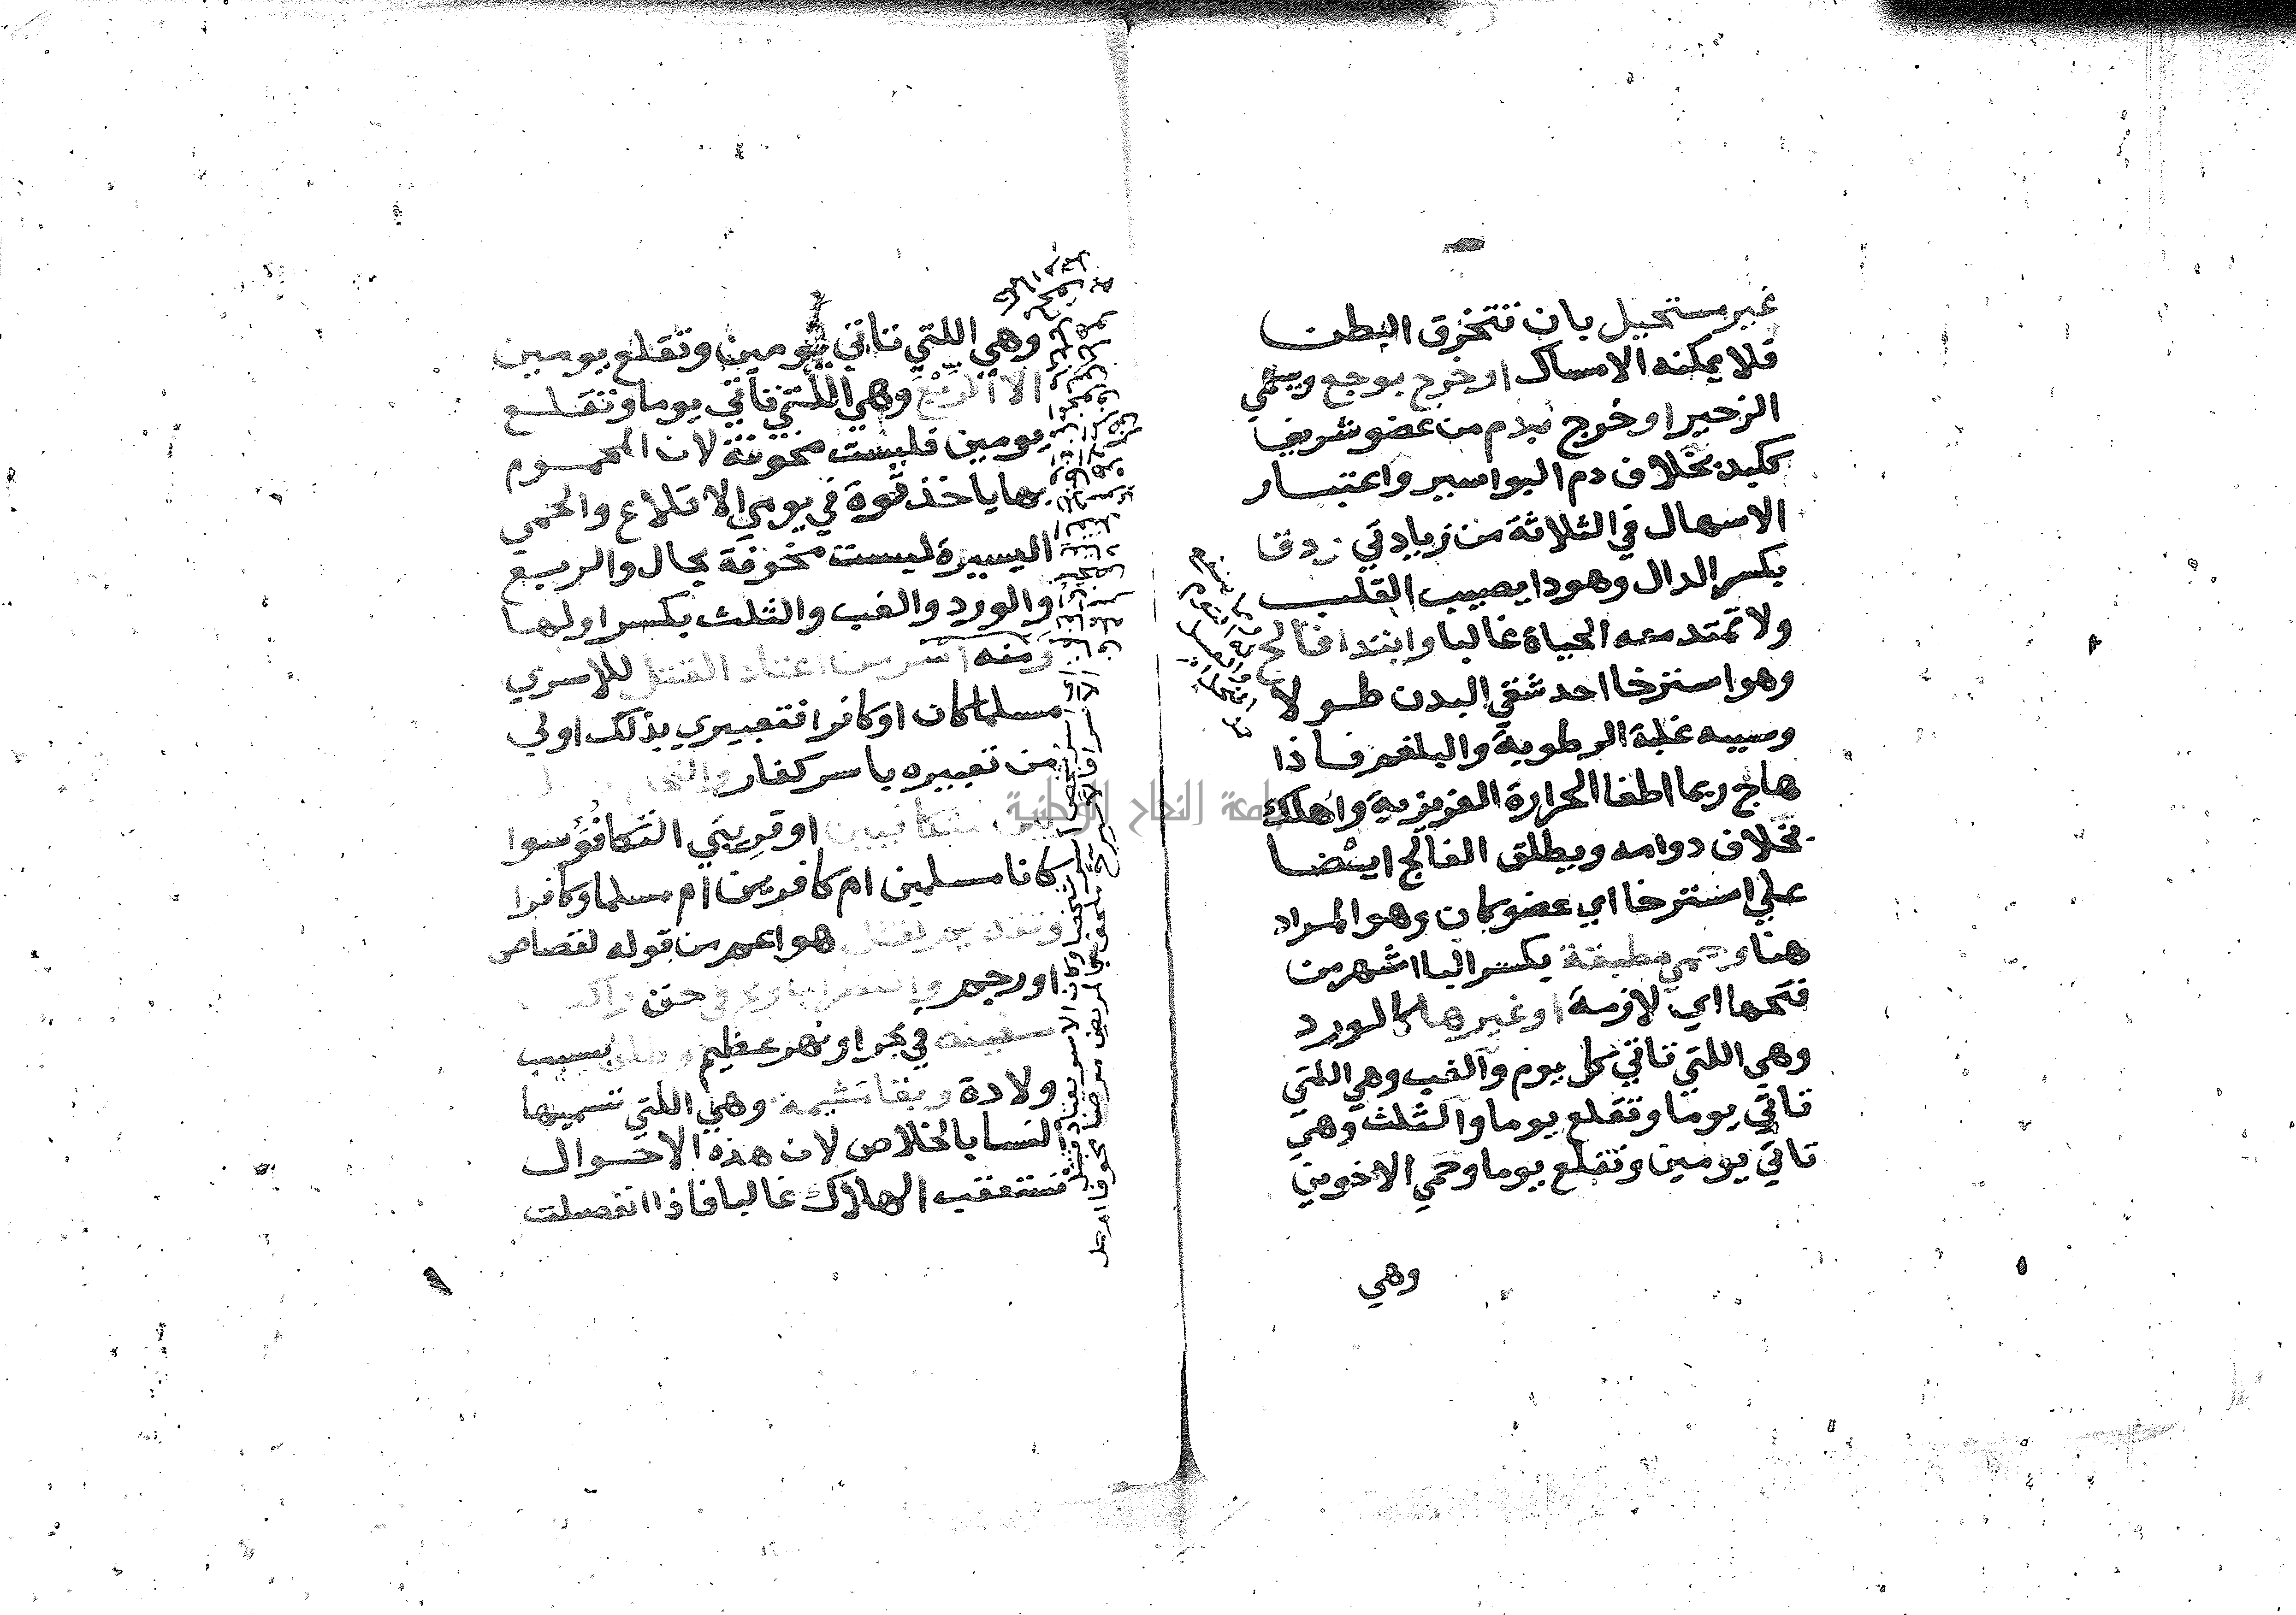 غير مستحيل بان تتخرق البطن
فلا يمكنه الامساك او خرج بوجع ويسمي
الزحير او خرج بدم من عضو شريف
ككبد بخلاف دم البواسير واعتبار
الاسهال في الثلاثة من زيادتي ودق
بكسر الدال وهو دا يصيب القلب
ولا تمتد معه الحياة غالبا وابتدا فالج
وهو استرخا احد شقي البدن طولا
وسببه غلبة الرطوبة والبلغم فاذا
هاج ربما اطفا الحرارة الغريزية واهلك
بخلاف دوامه ويطلق الفالج ايضا
علي استرخا اي عضو كان وهو المراد
هنا وحمي مطبقة بكسر البا اشهر من
فتحها اي لازمة او غيرها كالورد
وهي اللتي تاتي كل يوم والغب وهي اللتي
تاتي يوما وتقلع يوما والثلث وهي
تاتي يومين وتقلع يوما وحمي الاخوين
وهي
وهي اللتي تاتي يومين وتقلع يومين
الا الربع وهي اللتي تاتي يوما وتقلع
يومين فليست مخوفة لان المحموم
بها ياخذ قوة في يومي الاقلاع والحمي
اليسيرة ليست مخوفة بحال والربع
والورد والغب والثلث بكسر اولها
ومنه اسر من اعتاد القتل للاسري
مسلما كان او كافرا فتعبيري بذلك اولي
من تعبيره باسر كفار والتحام
بين متكافيين او قريبي التكافؤ سوا
كانا مسلمين ام كافرين ام مسلما وكافرا
وتقديم لقتل هو اعم من قوله لقصاص
او رجم واضطراب ريح في حق راكب
سفينة في بحر او نهر عظيم وطلق بسبب
ولادة وبقا مشيمة وهي اللتي تسميها
النسا بالخلاص لان هذه الاحوال
تستعقب الهلاك غالبا فاذا انفصلت
جامعة النجاح الوطنية